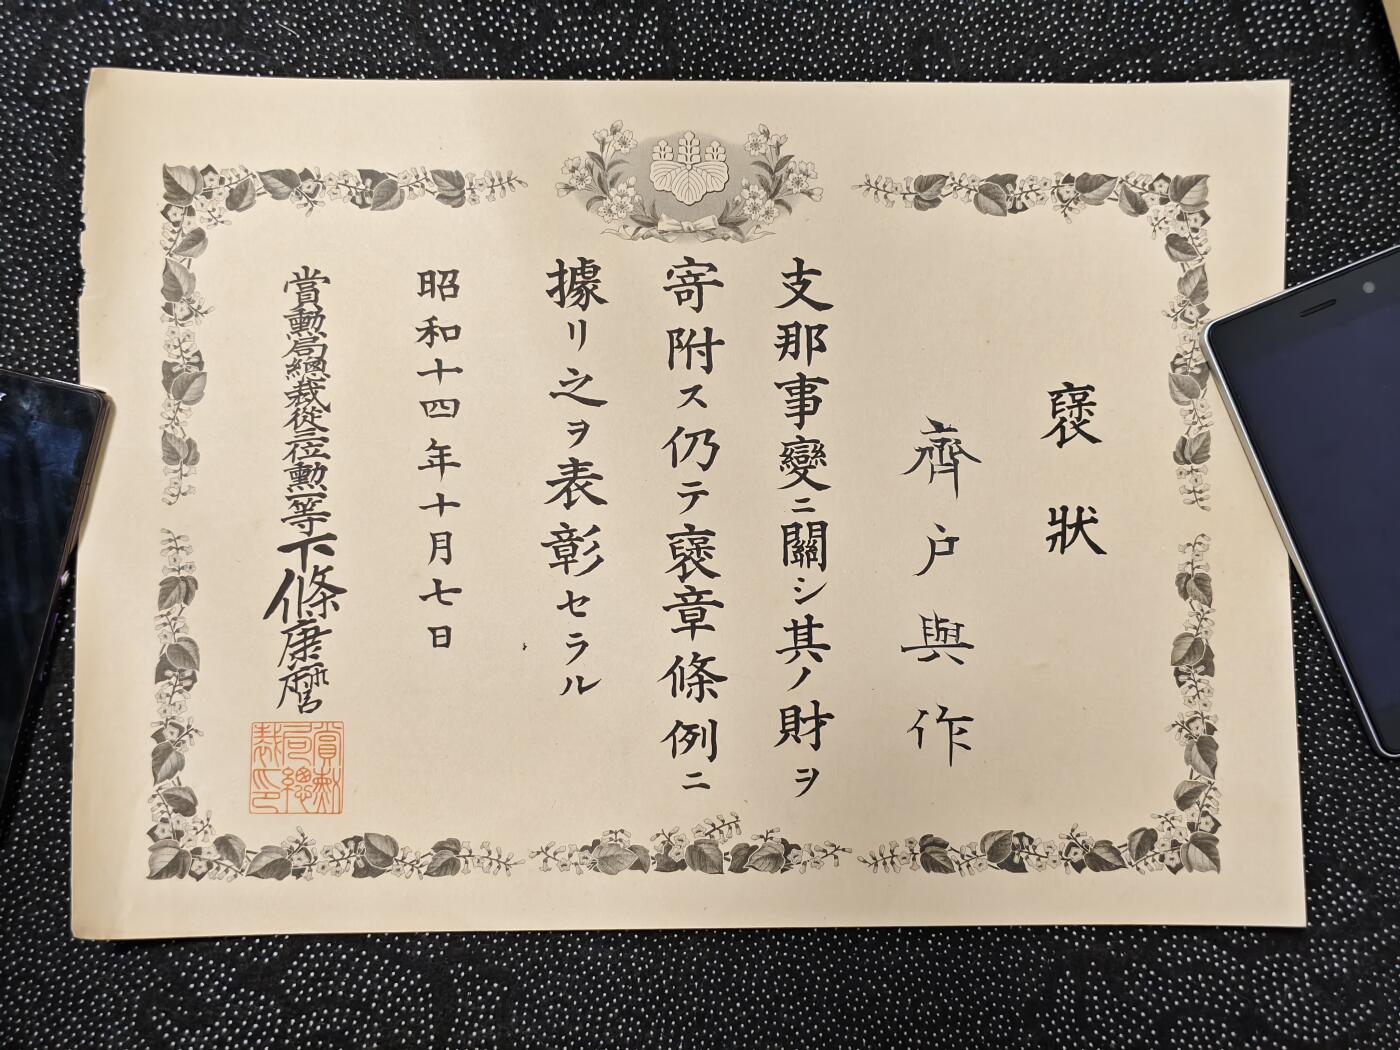 褒狀
齊户與作
支那事變ニ關シ其ノ財ヲ
寄附ス仍テ褒章條例ニ
據リ之ヲ表彰セラル
昭和十四年十月七日
賞勲局總裁從三位勲一等下條康麿
賞勲局總裁印